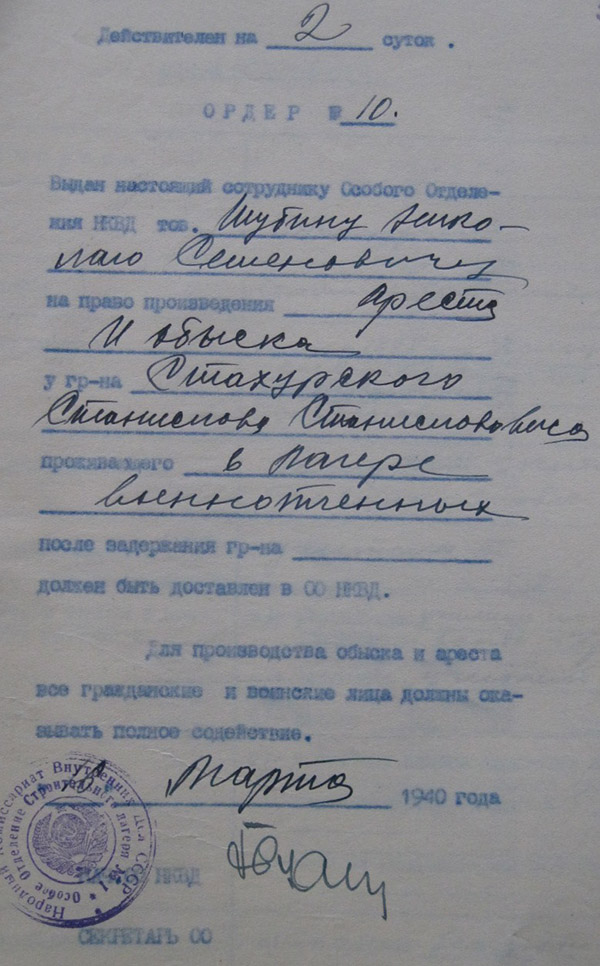 Действителен на 2 суток.
ОРДЕР № 10.
Выдан настоящий сотруднику Особого Отделе-
ния НКВД тов. Шубину Нико-
лаю Семеновичу
на право произведения ареста
и обыска
у гр-на Стахурского
Станислава Станиславовича
проживающего в лагере
военнопленных
после задержания гр-на
должен быть доставлен в ОО НКВД.
Для производства обыска и ареста
все гражданские и воинские лица должны ока-
зывать полное содействие.
Марта 1940 года
Народный Комиссариат Внутренних Дел СССР
Особое Отделение Строительного лагеря № 1
НКВД
СЕКРЕТАРЬ ОО